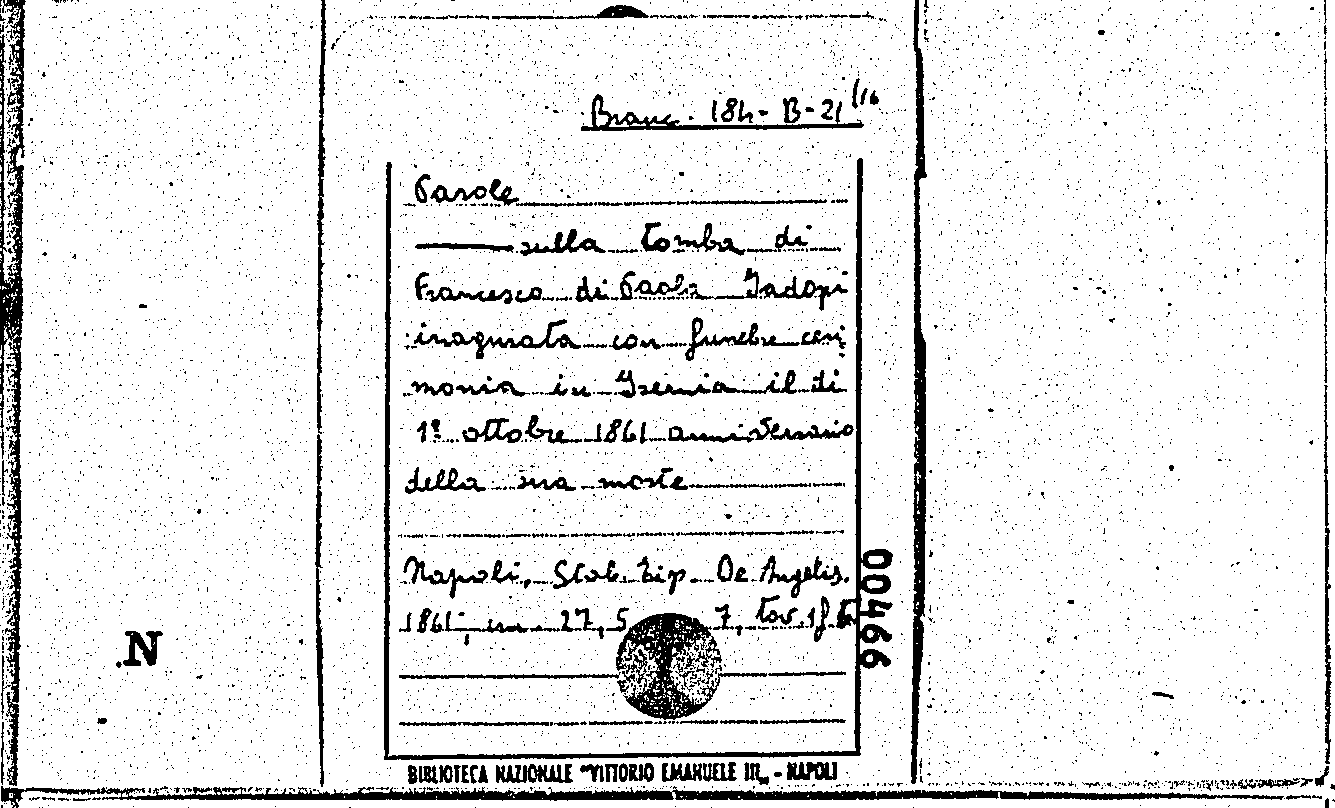 Branc. 184 - B - 21 (16
Parole
sulla tomba di
Francesco di Paola Jadopi
inagurata con funebre ceri
monia in Isernia il di
1º ottobre 1861 anniversario
della sua morte
Napoli, Stab. Tip. De Angelis,
1861; in 27, 5 7, tav. 1 f.t.
00466
N
BIBLIOTECA NAZIONALE "VITTORIO EMANUELE III„ - NAPOLI